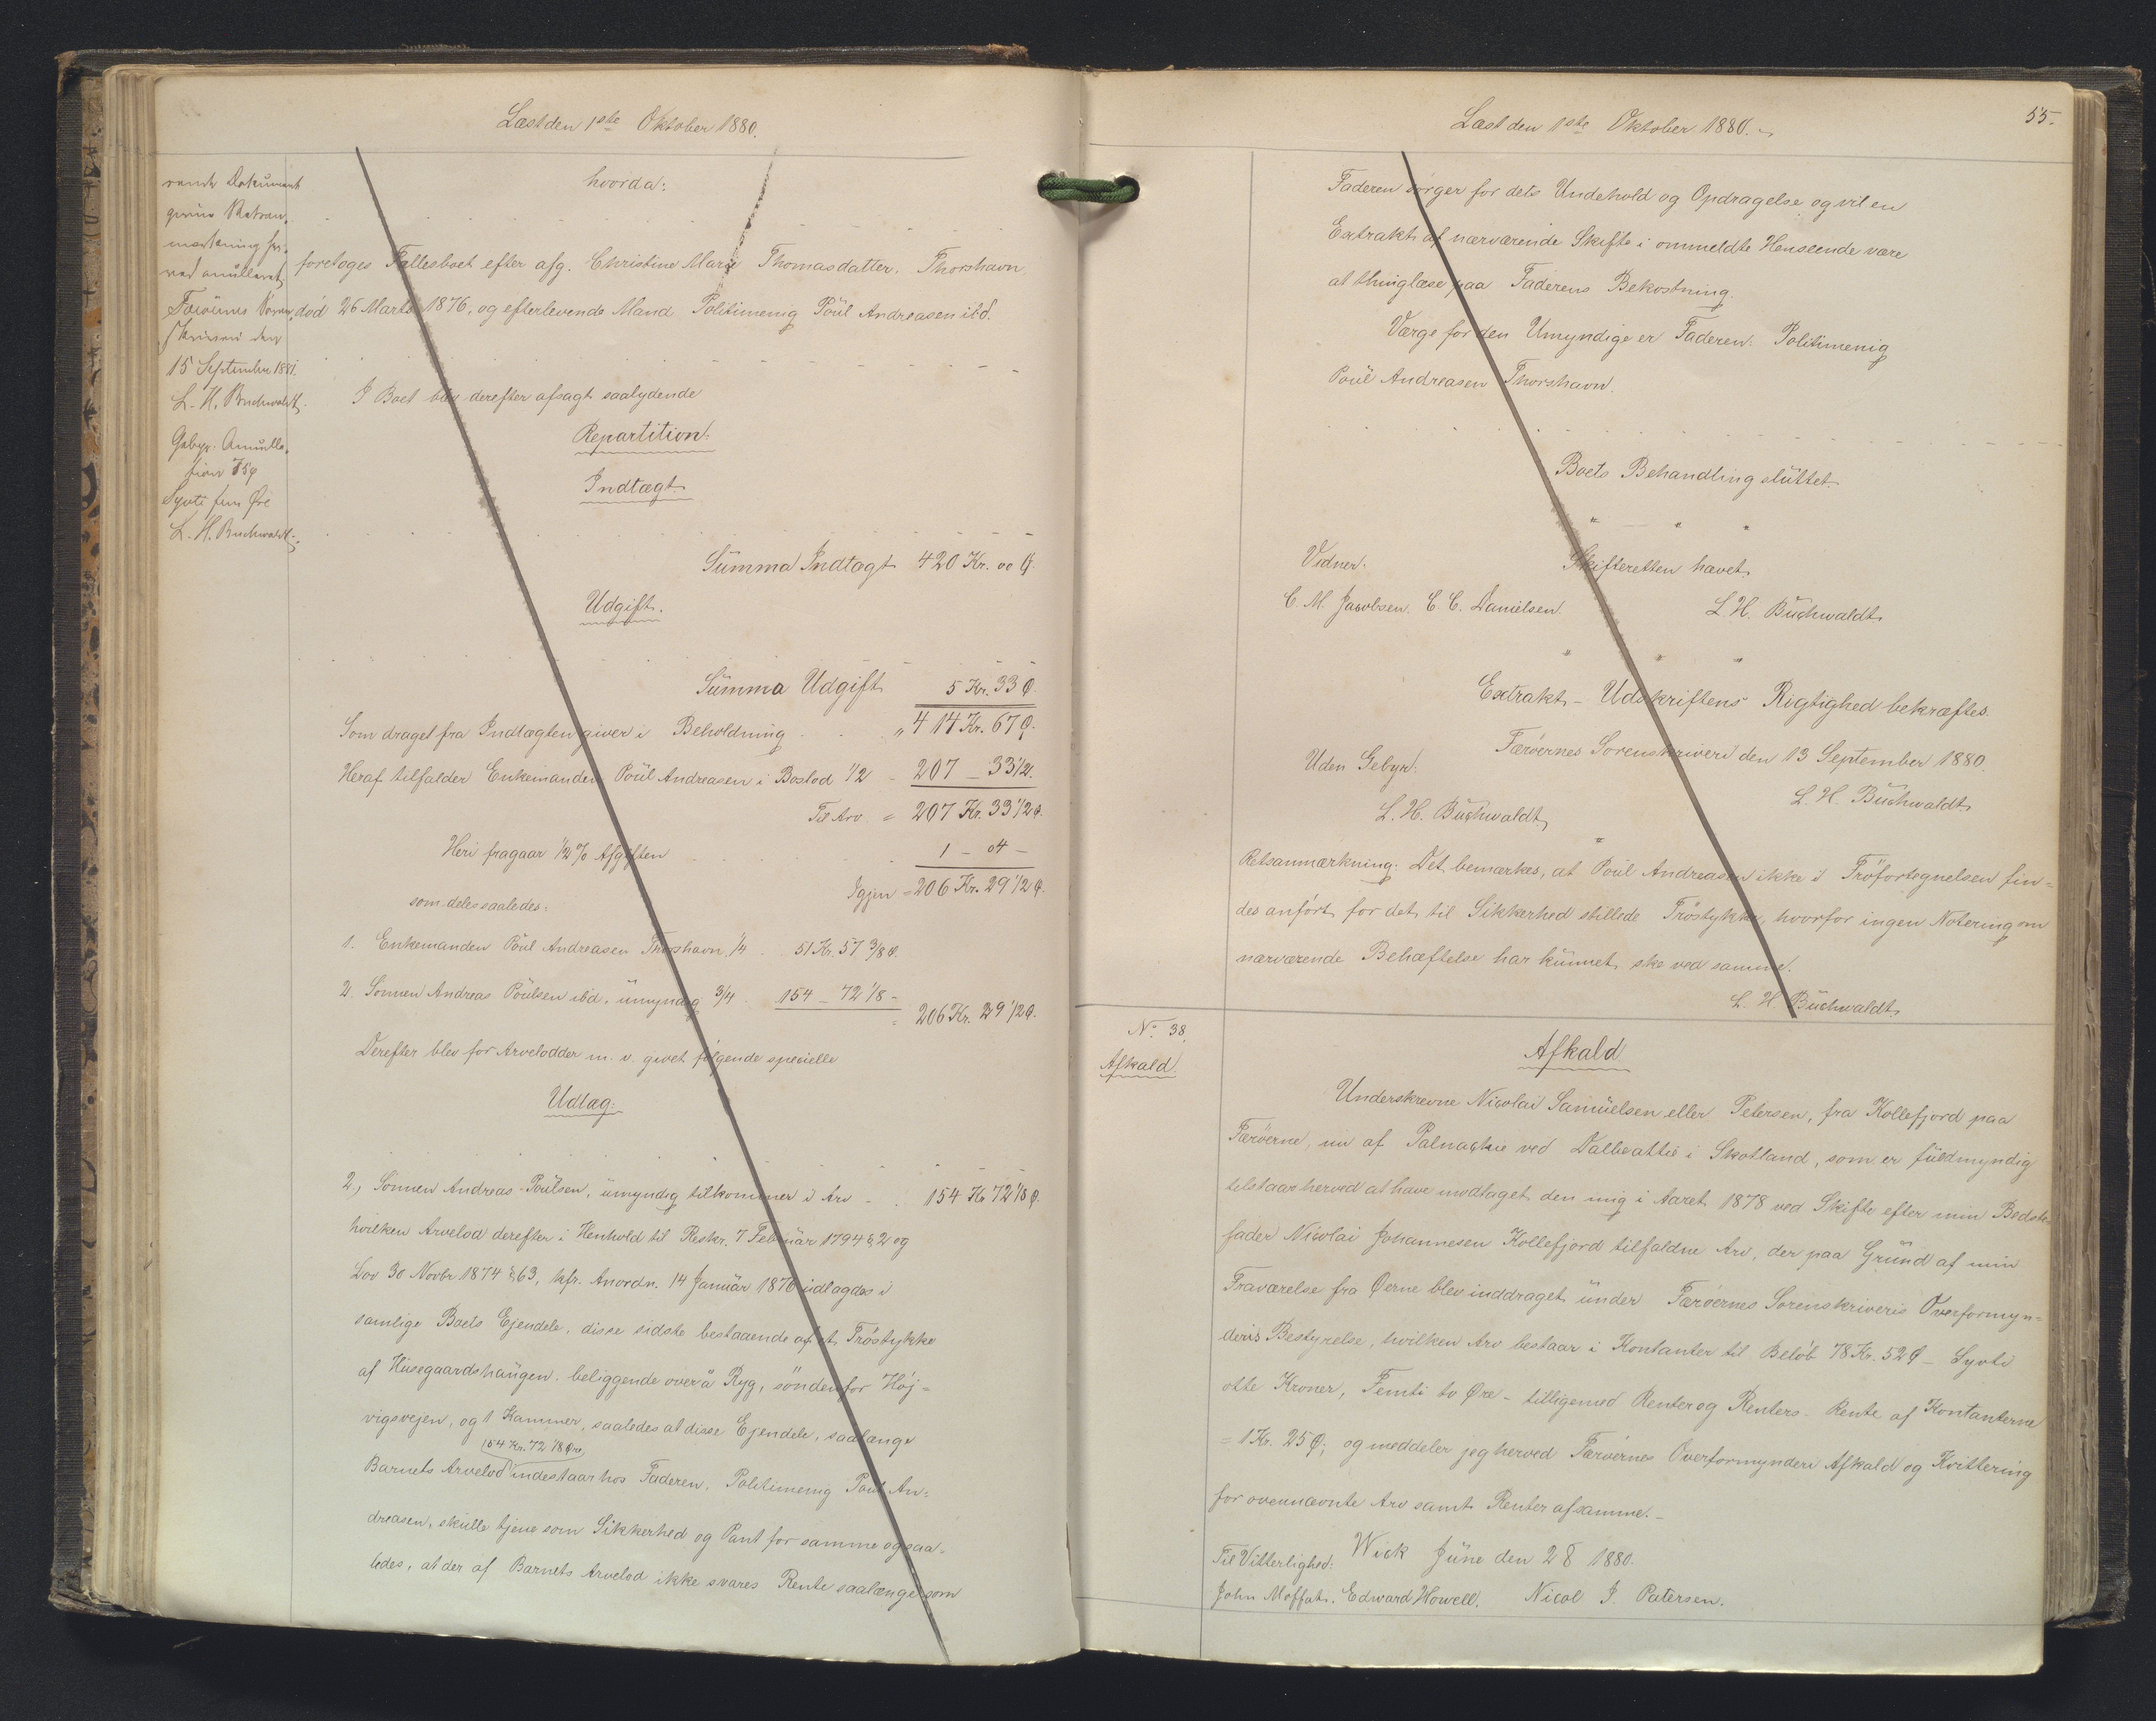 Læst den 1ste Oktober 1880.
rende Dokument
mærkning
15 September 1881.
L. H. Buchwaldt.
Gebyr: Annulla-
tion 75 Ø
Sytti fem Øre
L. H. Buchwaldt.
hvorda:
foretoges Fællesboet efter afg. Christine Marie Thomasdatter, Thorshavn,
död 26 Marts 1876, og efterlevende Mand Politimenig Poül Andreasen ibd.
I Boet blev derefter afsagt saalydende
Repartition:
Indtægt.
Sümma Indtægt 420 Kr. 00 Ø.
Udgift.
Sümma Udgift 5 Kr. 33 Ø
Som draget fra Indtægten giver i Beholdning " 414 Kr. 67 Ø.
Heraf tilfalder Enkemanden Poül Andreasen i Boslod 1/2 - 207 - 33 1/2.
Til Arv = 207 Kr. 33 1/2 Ø.
Heri fragaar 1/2 % Afgiften 1 - 04 -
Igjen = 206 Kr. 29 1/2 Ø.
som deles saaledes:
1. Enkemanden Poül Andreasen Thorshavn, 1/4 51 Kr. 57 3/8 Ø.
2. Sönnen Andreas Poülsen ibd. ümyndig 3/4 154 - 72 1/8 -
= 206 Kr. 29 1/2 Ø.
Derefter blev for Arvelodder m. v. givet følgende specielle
Udlæg:
2, Sönnen Andreas Poülsen, ümyndig tilkommer i Arv - 154 Kr 72 1/8 Ø.
hvilken Arvelod derefter i Henhold til Reskr. 7 Februär 1794 § 2 og
Lov 30 Novbr 1874 § 63, kfr. Anordn. 14 Januär 1876 üdlagdes i
samlige Boets Ejendele, disse sidste bestaaende af et Tröstykke
af Hüsegaardshaügen. beliggende over å Ryg, söndenfor Höj-
vigsvejen, og 1 Kammer, saaledes at disse Ejendele, saalænge
154 Kr. 72 1/8 Øre,
Barnets Arvelod indestaar hos Faderen, Politimenig Poul An-
dreasen, skülle tjene som Sikkerhed og Pant for samme og saa-
ledes, at der af Barnets Arvelod ikke svares Rente saalænge som
Læst den 1ste Oktober 1880.
55.
Faderen sørger for dets Undehold og Opdragelse og vil en
Extrakt af nærværende Skifte i ommeldte Henseende være
at thinglæse paa Faderens Bekostning.
Værge for den Umyndige er Faderen: Politimenig
Poül Andreasen Thorshavn.
Boets Behandling slüttet.
Vidner.
Skifteretten hævet
C. M. Jacobsen. C. C. Danielsen.
L. H. Büchwaldt.
Extrakt-Udskriftens Rigtighed bekræftes.
Færöernes Sorenskriveri den 13 September 1880.
Uden Gebyr:
L. H. Büchwaldt
L. H. Büchwaldt,
Retsanmærkning: Det bemærkes, at Poül Andreasen ikke i Tröfortegnelsen fin-
des anført for det til Sikkerhed stillede Tröstykke, hvorfor ingen Notering om
nærværende Behæftelse har künnet ske ved samme.
L. H. Büchwaldt.
No. 38.
Afkald
Afkald
Underskrevne Nicolai Samüelsen eller Petersen, fra Kollefjord paa
Færöerne, nu af Palnackie ved Dalbeattie i Skotland, som er füldmyndig
tilstaar herved at have modtaget den mig i Aaret 1878 ved Skifte efter min Bedste-
fader Nicolai Johannesen Kollefjord tilfaldne Arv, der paa Gründ af min
Fraværelse fra Øerne blev inddraget ünder Færöernes Sorenskriveris Overformyn-
deris Bestyrelse, hvilken Arv bestaar i Kontanter til Beløb 78 Kr. 52 Ø - Sytti
otte Kroner, Femti to Øre - tilligemed Renter og Renters - Rente af Kontanterne
= 1 Kr. 25 Ø; og meddeler jeg herved Færöernes Overformynderi Afkald og Kvittering
for ovennævnte Arv samt Renter af samme.
Wick Jüne den 28 1880.
Til Vitterlighed:
John Moffat. Edward Howell. Nicol J. Petersen.